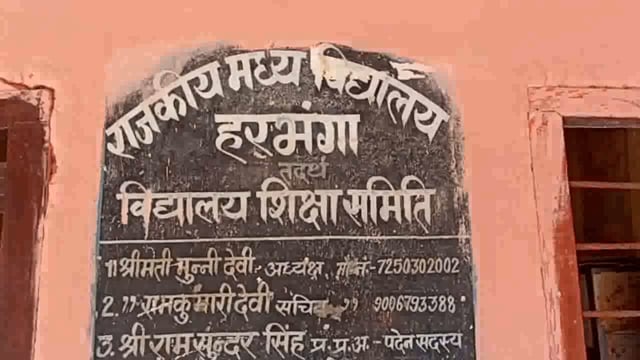 राजकीय मध्य विद्यालय
हरभंगा
तदर्थ
विद्यालय शिक्षा समिति
1 श्रीमती मुन्नी देवी, अध्यक्ष, मो.नं.-7250302002
2. ,, रामकुमारी देवी सचिव ,, 9006793388
3. श्री राम सुन्दर सिंह प्र.प्र.अ.- पदेन सदस्य